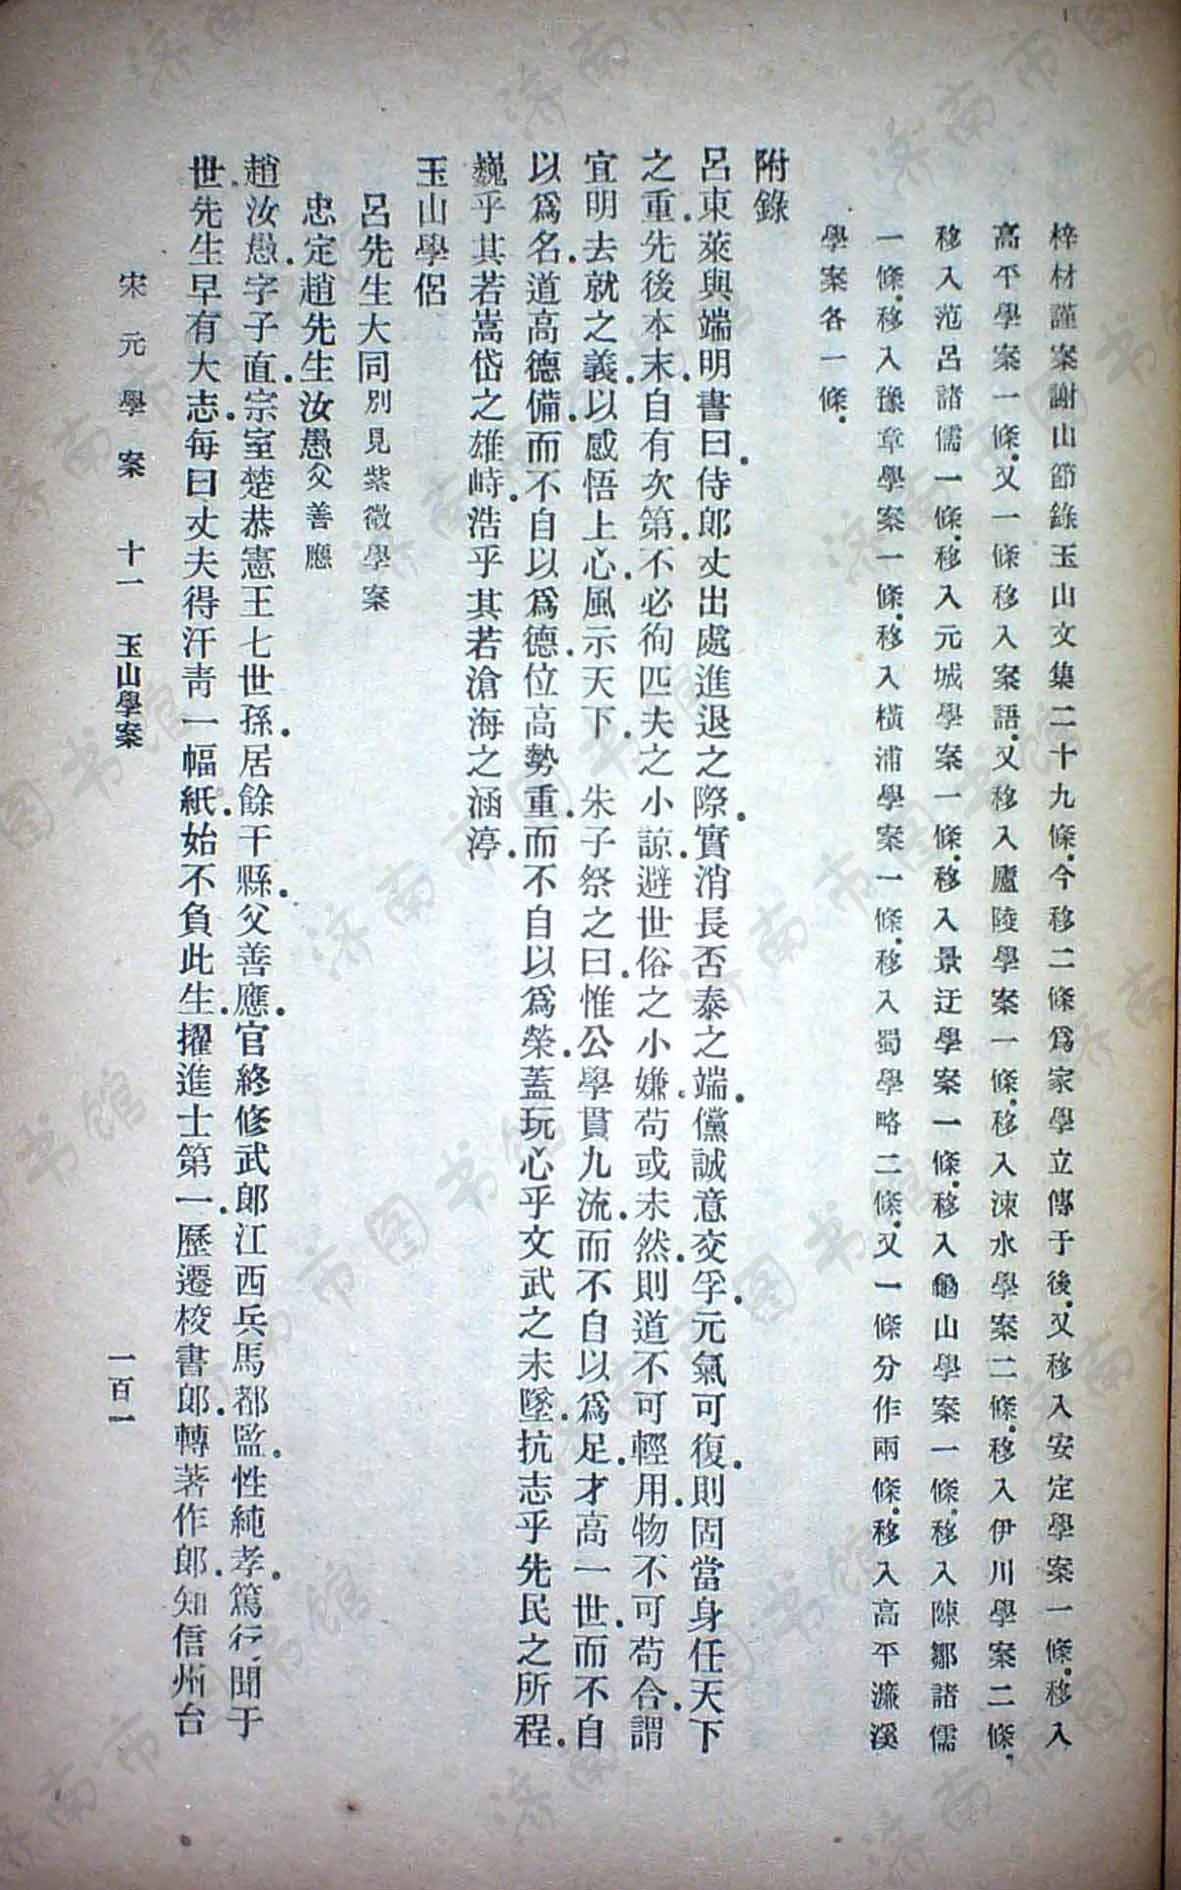 梓材謹案謝山節錄玉山文集二十九條.今移二條爲家學立傳于後.又移入安定學案一條.移入
高平學案一條.又一條移入案語.又移入廬陵學案一條.移入涑水學案二條.移入伊川學案二條.
移入范呂諸儒一條.移入元城學案一條.移入景迂學案一條.移入龜山學案一條.移入陳鄒諸儒
一條.移入豫章學案一條.移入橫浦學案一條.移入蜀學略二條.又一條分作兩條.移入高平濂溪
學案各一條.
附錄
呂東萊與端明書曰.侍郎丈出處進退之際.實消長否泰之端.儻誠意交孚.元氣可復.則固當身任天下
之重.先後本末.自有次第.不必徇匹夫之小諒.避世俗之小嫌.苟或未然.則道不可輕用.物不可苟合.謂
宜明去就之義.以感悟上心.風示天下. 朱子祭之曰.惟公學貫九流.而不自以爲足.才高一世.而不自
以爲名.道高德備.而不自以爲德.位高勢重.而不自以爲榮.蓋玩心乎文武之未墜.抗志乎先民之所程.
巍乎其若嵩岱之雄峙.浩乎其若滄海之涵渟.
玉山學侶
呂先生大同別見紫微學案
忠定趙先生汝愚父善應
趙汝愚.字子直.宗室楚恭憲王七世孫.居餘干縣.父善應.官終修武郎江西兵馬都監.性純孝.篤行.聞于
世.先生早有大志.每曰丈夫得汗青一幅紙.始不負此生.擢進士第一.歷遷校書郎.轉著作郎.知信州台
宋元學案 十一 玉山學案 一百一
济南市图书馆